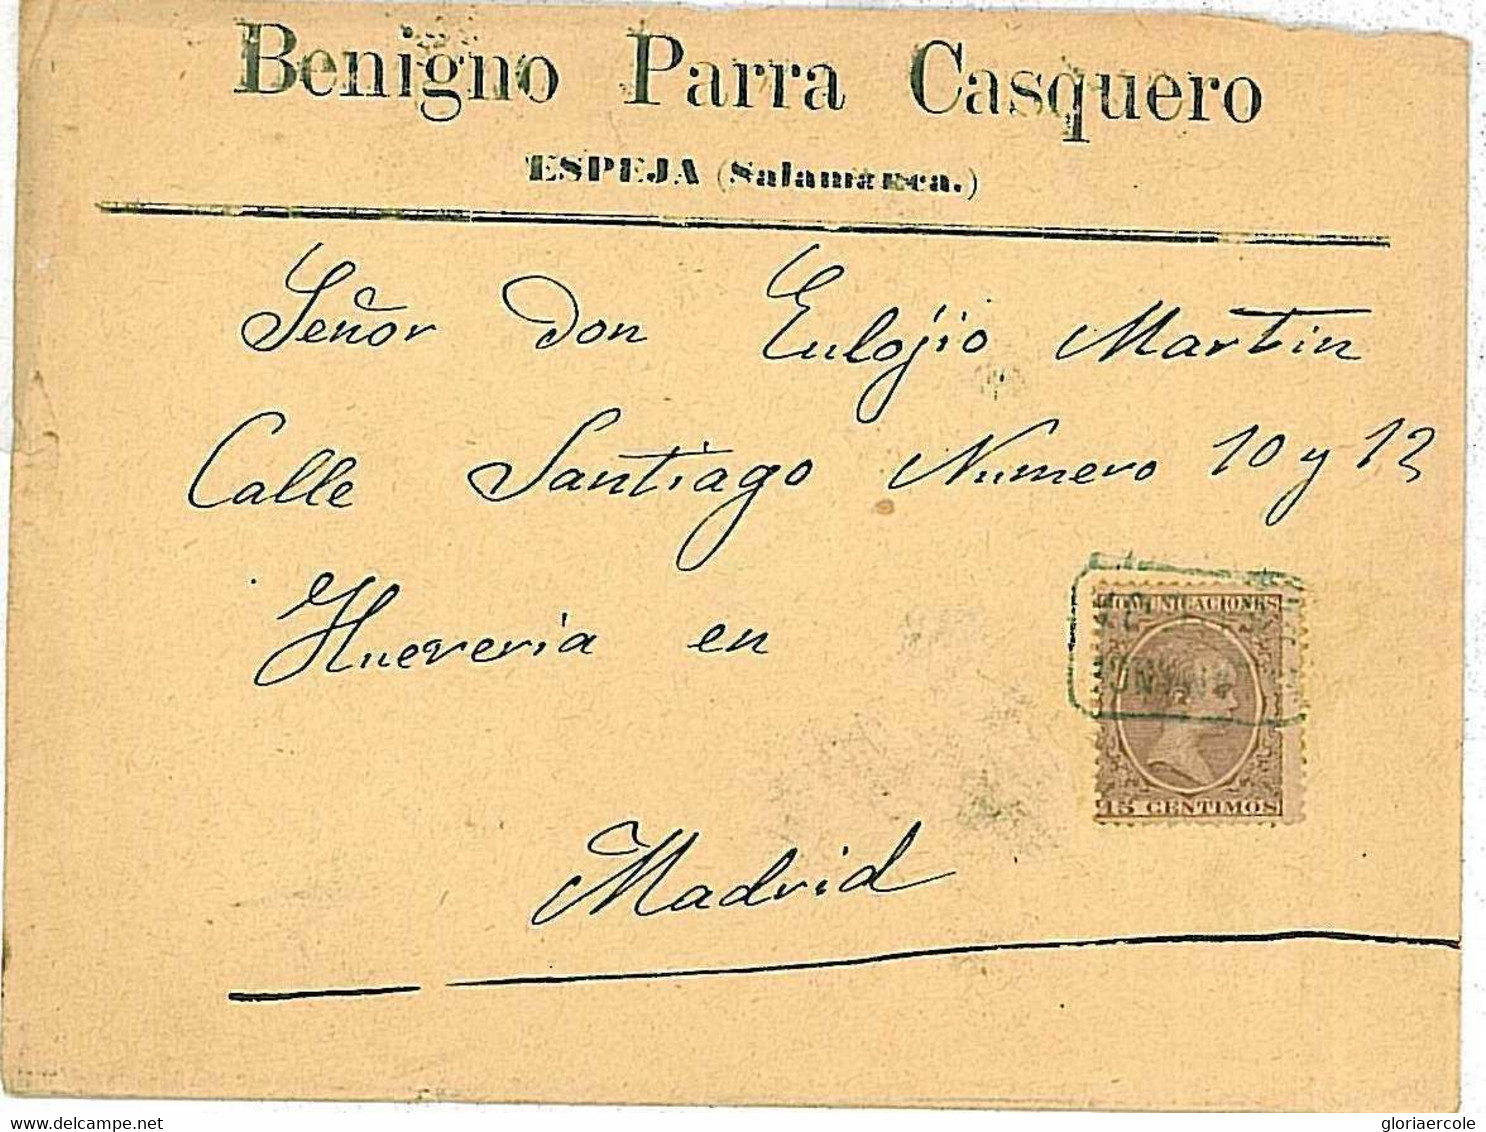 Benigno Parra Casquero
ESPEJA (Salamanca.)
Señor don Eulojio Martin
Calle Santiago Numero 10 y 12
Huevería en
Madrid
COMUNICACIONES
15 CENTIMOS
gloriaercole